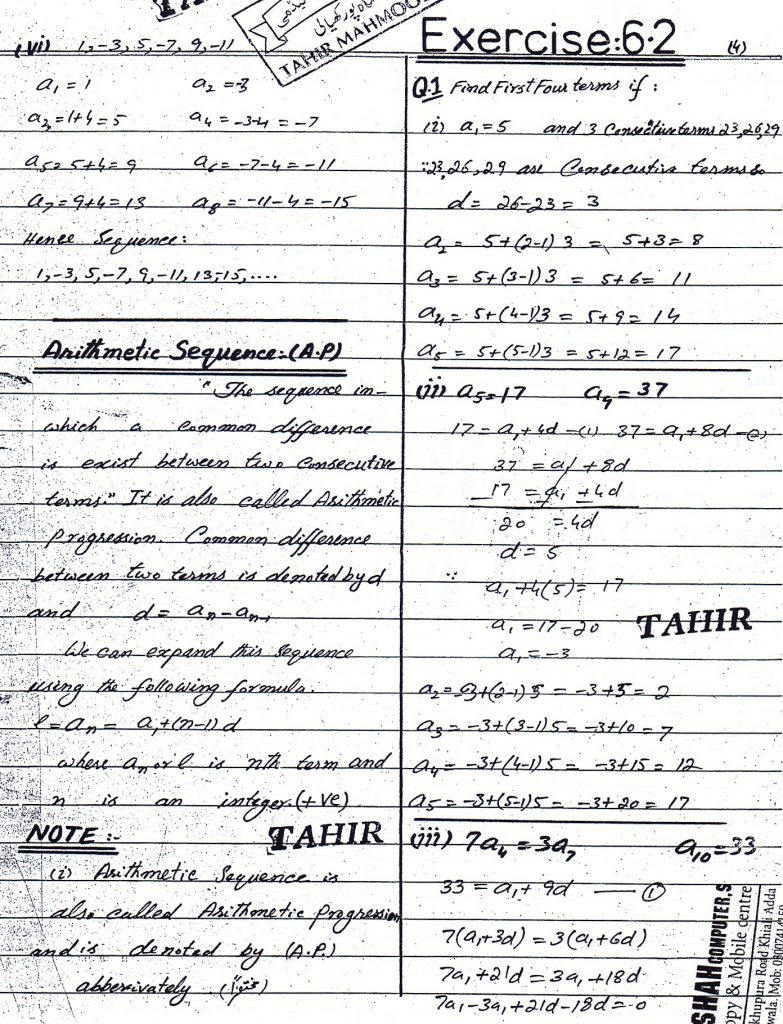 (vi) 1,-3, 5,-7, 9,-11
a₁ = 1 a₂ = -3
a₃ = 1+4 = 5 a₄ = -3-4 = -7
a₅ = 5+4 = 9 a₆ = -7-4 = -11
a₇ = 9+4 = 13 a₈ = -11-4 = -15
Hence Sequence:
1,-3, 5,-7, 9,-11, 13,-15,....
Arithmetic Sequence:(A.P)
"The sequence in-
which a common difference
is exist between two consecutive
terms." It is also called Arithmetic
Progression. Common difference
between two terms is denoted by d
and d = aₙ-aₙ₋₁
We can expand this sequence
using the following formula.
l = aₙ = a₁+(n-1)d
where aₙ or l is nth term and
n is an integer.(+ve)
NOTE :-
TAHIR
(i) Arithmetic Sequence is
also called Arithmetic progression
and is denoted by (A.P.)
abberivately
TAHIR MAHMOO
Exercise:6.2
(4)
Q.1 Find First Four terms if :
(i) a₁=5 and 3 Consective terms 23,26,29
∵23,26,29 are Consecutive terms so
d = 26-23 = 3
a₂ = 5+(2-1)3 = 5+3 = 8
a₃ = 5+(3-1)3 = 5+6 = 11
a₄ = 5+(4-1)3 = 5+9 = 14
a₅ = 5+(5-1)3 = 5+12 = 17
(ii) a₅=17 a₉=37
17 = a₁+4d —(1) 37 = a₁+8d —(2)
37 = a₁ +8d
17 = a₁ +4d
20 = 4d
d = 5
∵ a₁ +4(5) = 17
a₁ = 17-20
a₁ = -3
TAHIR
a₂ = -3+(2-1)5 = -3+5 = 2
a₃ = -3+(3-1)5 = -3+10 = 7
a₄ = -3+(4-1)5 = -3+15 = 12
a₅ = -3+(5-1)5 = -3+20 = 17
(iii) 7a₄ = 3a₇ a₁₀=33
33 = a₁+ 9d — ①
7(a₁+3d) = 3(a₁+6d)
7a₁+21d = 3a₁+18d
7a₁-3a₁+21d-18d = 0
SHAH COMPUTER,S
opy & Mobile centre
khupura Road Khiali Adda